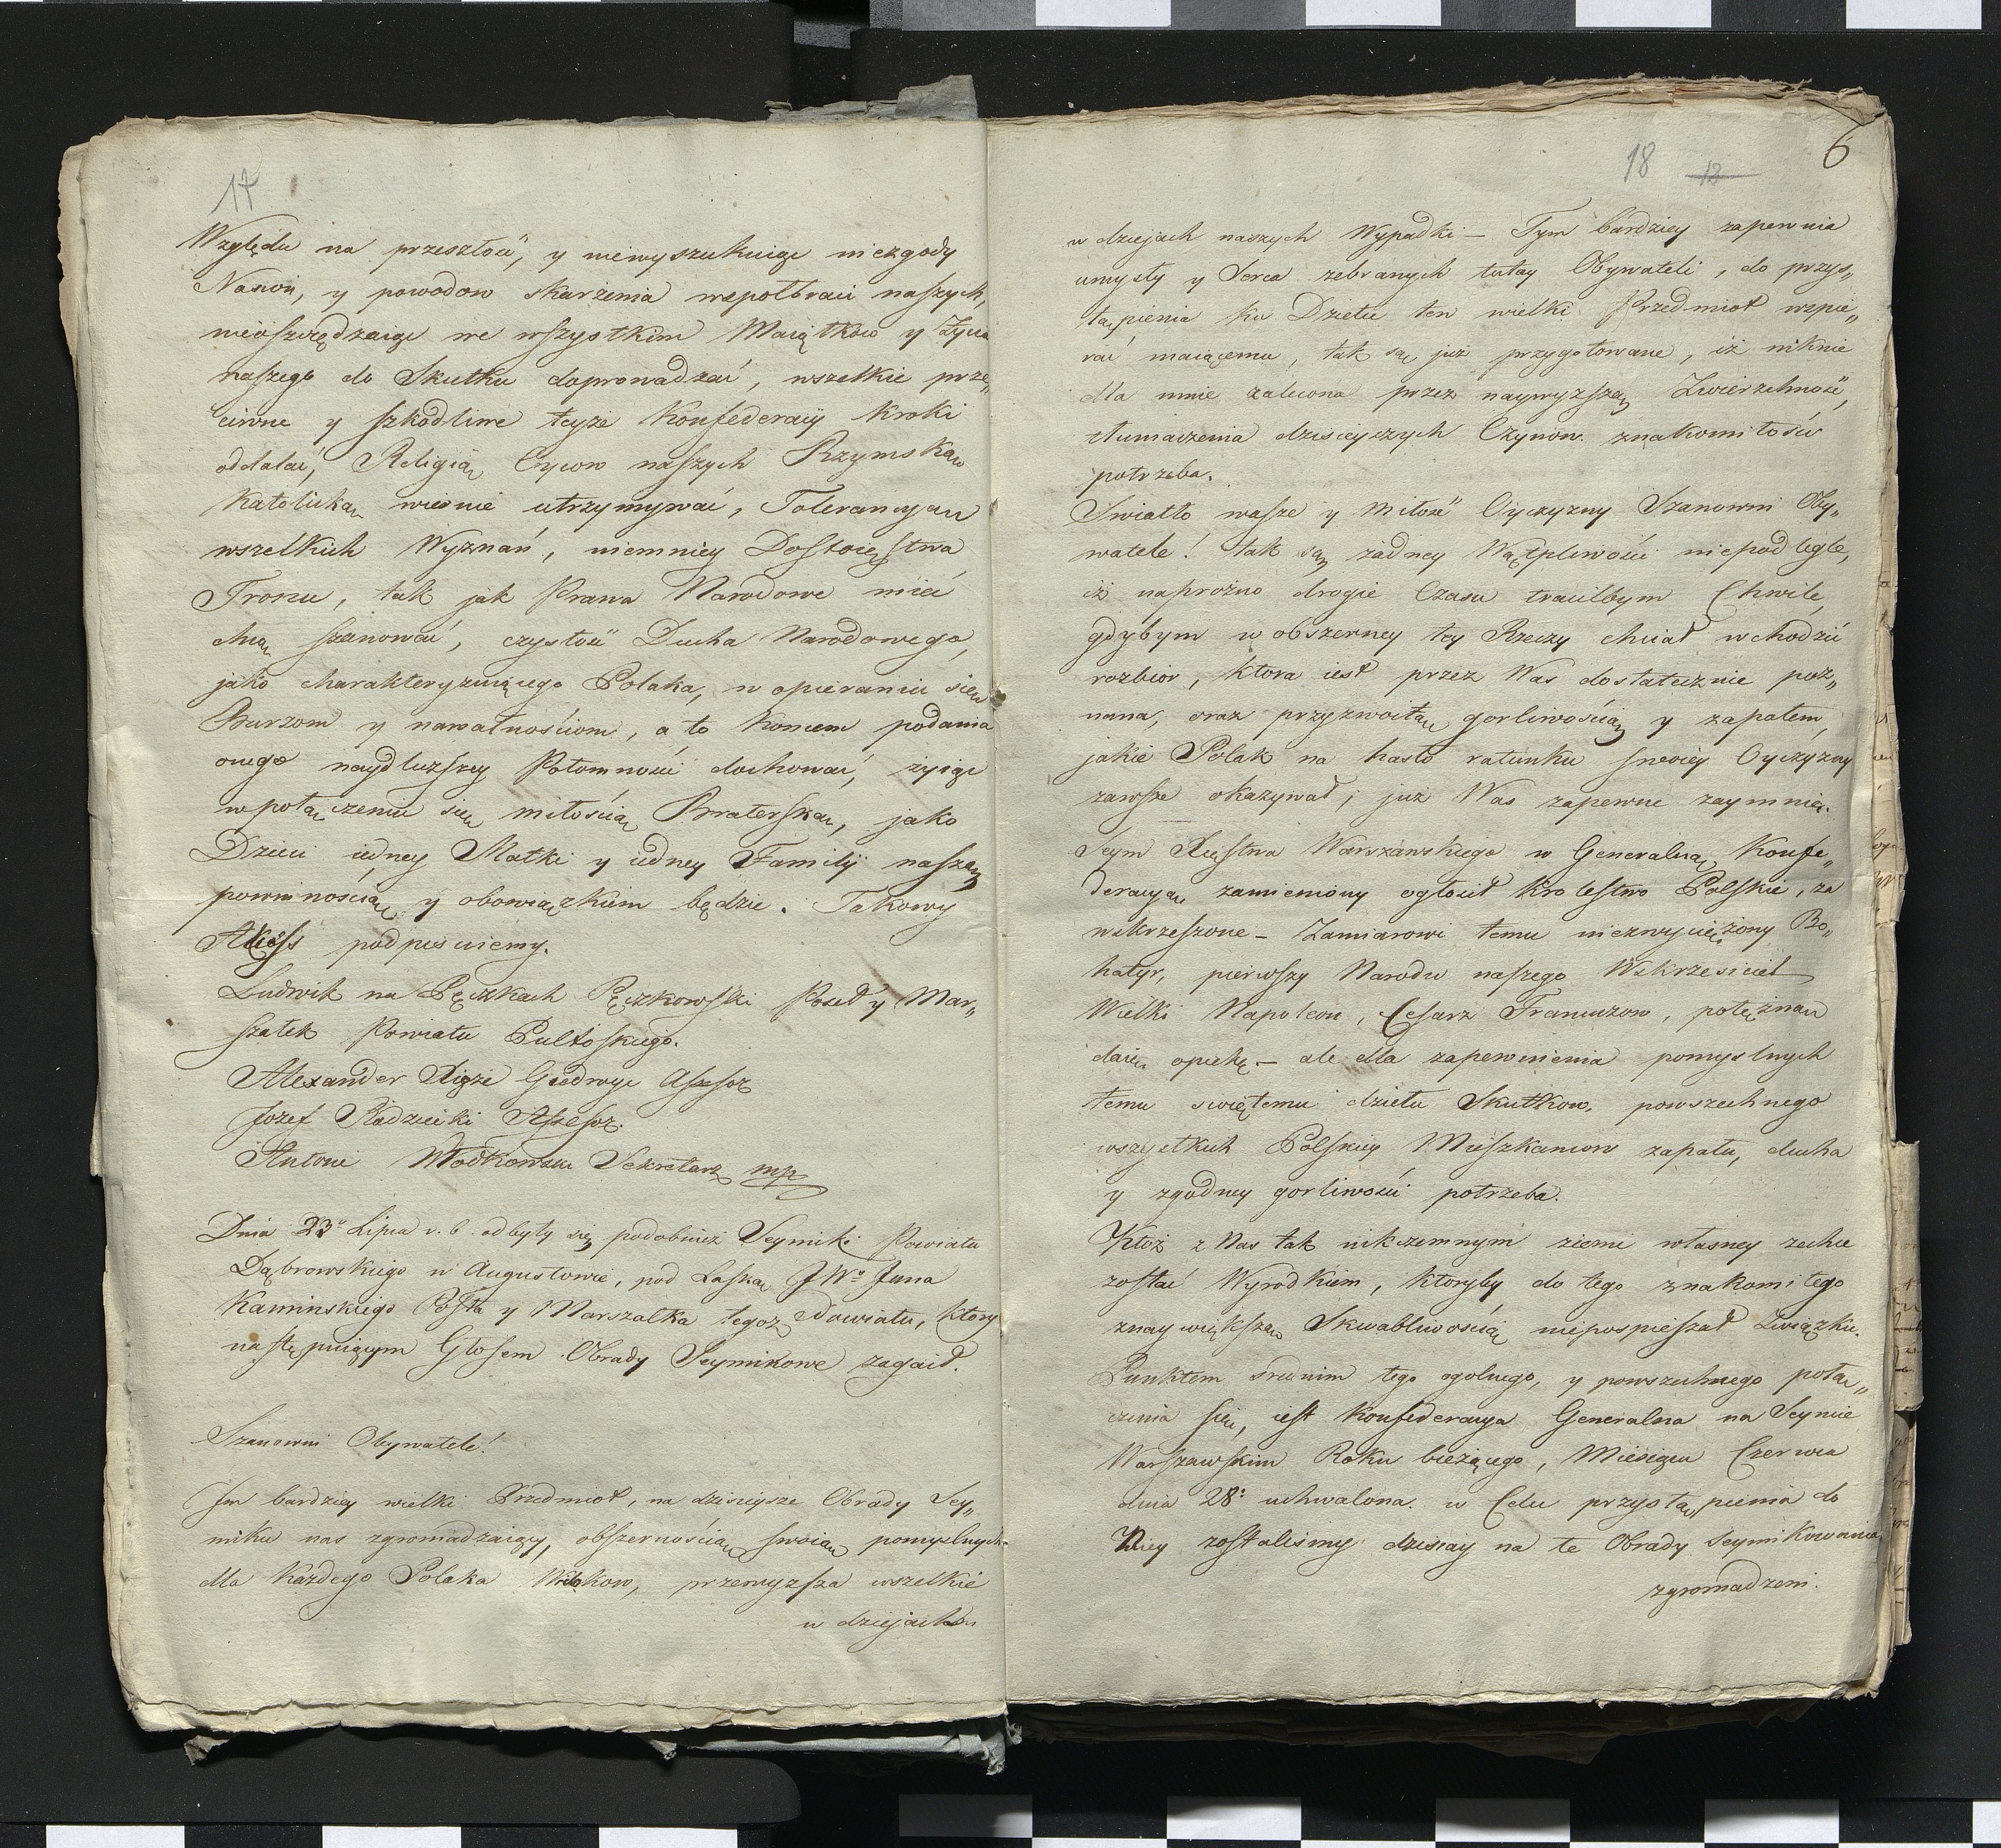 17
Względu na przeszłość, y niewyszukuiąc niezgody
Nasion, y powodow skarżenia wspołbraci naszych,
nieoszczędzaiąc we wszystkim Maiątkow y Życia
naszego do Skutku doprowadzać, wszelkie prze„
ciwne y szkodliwe teyże Konfederacyi Kroki
oddalać, Religią Oycow naszych Rzymską
Katolicką wiernie utrzymywać, Tolerancyą
wszelkich Wyznań, niemniey Dostoieństwa
Tronu, tak jak Prawa Narodowe mieć
chcą szanować, czystość Ducha Narodowego,
jako charakteryzuiącego Polaka, w opieraniu się
Burzom y nawałnościom, a to Koncem podania
onego naydłuższey Potomności dochować, żyiąc
w połączeniu się miłością Braterską, jako
Dzieci iedney Matki y iedney Familij naszą
powinnością y obowiązkiem będzie. Takowy
Akcess podpisuiemy.
Ludwik na Pęczkach Pęczkowski Poseł y Mar„
szałek Powiatu Pułtoskiego.
Alexander Xiąże Giedroyc Assessor
Jozef Radzicki Assessor.
Antoni Młodkowski Sekretarz mp
Dnia 23º Lipca r. b. odbyły się podobnież Seymiki Powiatu
Dąbrowskiego w Augustowie, pod Laską JWº Jana
Kaminskiego Posła y Marszałka tegoz Powiatu, ktory
następuiącym Głosem Obrady Seymikowe zagaił.
Szanowni Obywatele!
Im bardziey wielki Przedmiot, na dzisieysze Obrady Sey„
miku nas zgromadzaiący, obszernością swoią pomyslnych
dla Każdego Polaka Widokow, przewyzsza wszelkie
w dziejach
18 12 6
w dziejach naszych Wypadki — Tym bardziey zapewnia
umysły y Serca zebranych tutay Obywateli, do przys„
tąpienia ku Dziełu ten wielki Przedmiot wspie„
rać maiącemu, tak są już przygotowane, iż niknie
dla mnie zalecona przez naywyzszą Zwierzchność,
tłumaczenia dzisieyszych Czynow znakomitości
potrzeba.
Swiatło wasze y miłość Oyczyzny Szanowni Oby„
watele! tak są żadney Wątpliwości niepodległe,
iż naprożno drogie Czasu traciłbym Chwile,
gdybym w obszerney tey Rzeczy chciał wchodzić
rozbior, ktora iest przez Was dostatecznie poz„
nana, oraz przyzwoitą gorliwością y zapałem,
jakie Polak na hasło ratunku swoiey Oyczyzny
zawsze okazywał, już Was zapewne zaymuie.
Seym Xięstwa Warszawskiego w Generalną Konfe„
deracyą zamieniony ogłosił Krolestwo Polskie, za
wskrzeszone — Zamiarowi temu niezwyciężony Bo„
hatyr, pierwszy Narodu naszego Wskrzesiciel
Wielki Napoleon, Cesarz Francuzow, potężną
daie opiekę — ale dla zapewnienia pomyslnych
temu swiętemu dziełu Skutkow, powszechnego
wszystkich Polskiey Mieszkancow zapału, ducha
y zgodney gorliwości potrzeba.
Ktoż z Nas tak nikczemnym ziemi własney zechce
zostać Wyrodkiem, ktoryby do tego znakomitego
znaywiększą Skwapliwością niepospieszał Związku.
Punktem srednim tego ogolnego, y powszechnego połą„
czenia się, iest Konfederacya Generalna na Seymie
Warszawskim Roku bieżącego, Miesiąca Czerwca
dnia 28º uchwalona. w Celu przystąpienia do
Niey zostalismy dzisiay na te Obrady Seymikowania
zgromadzeni.